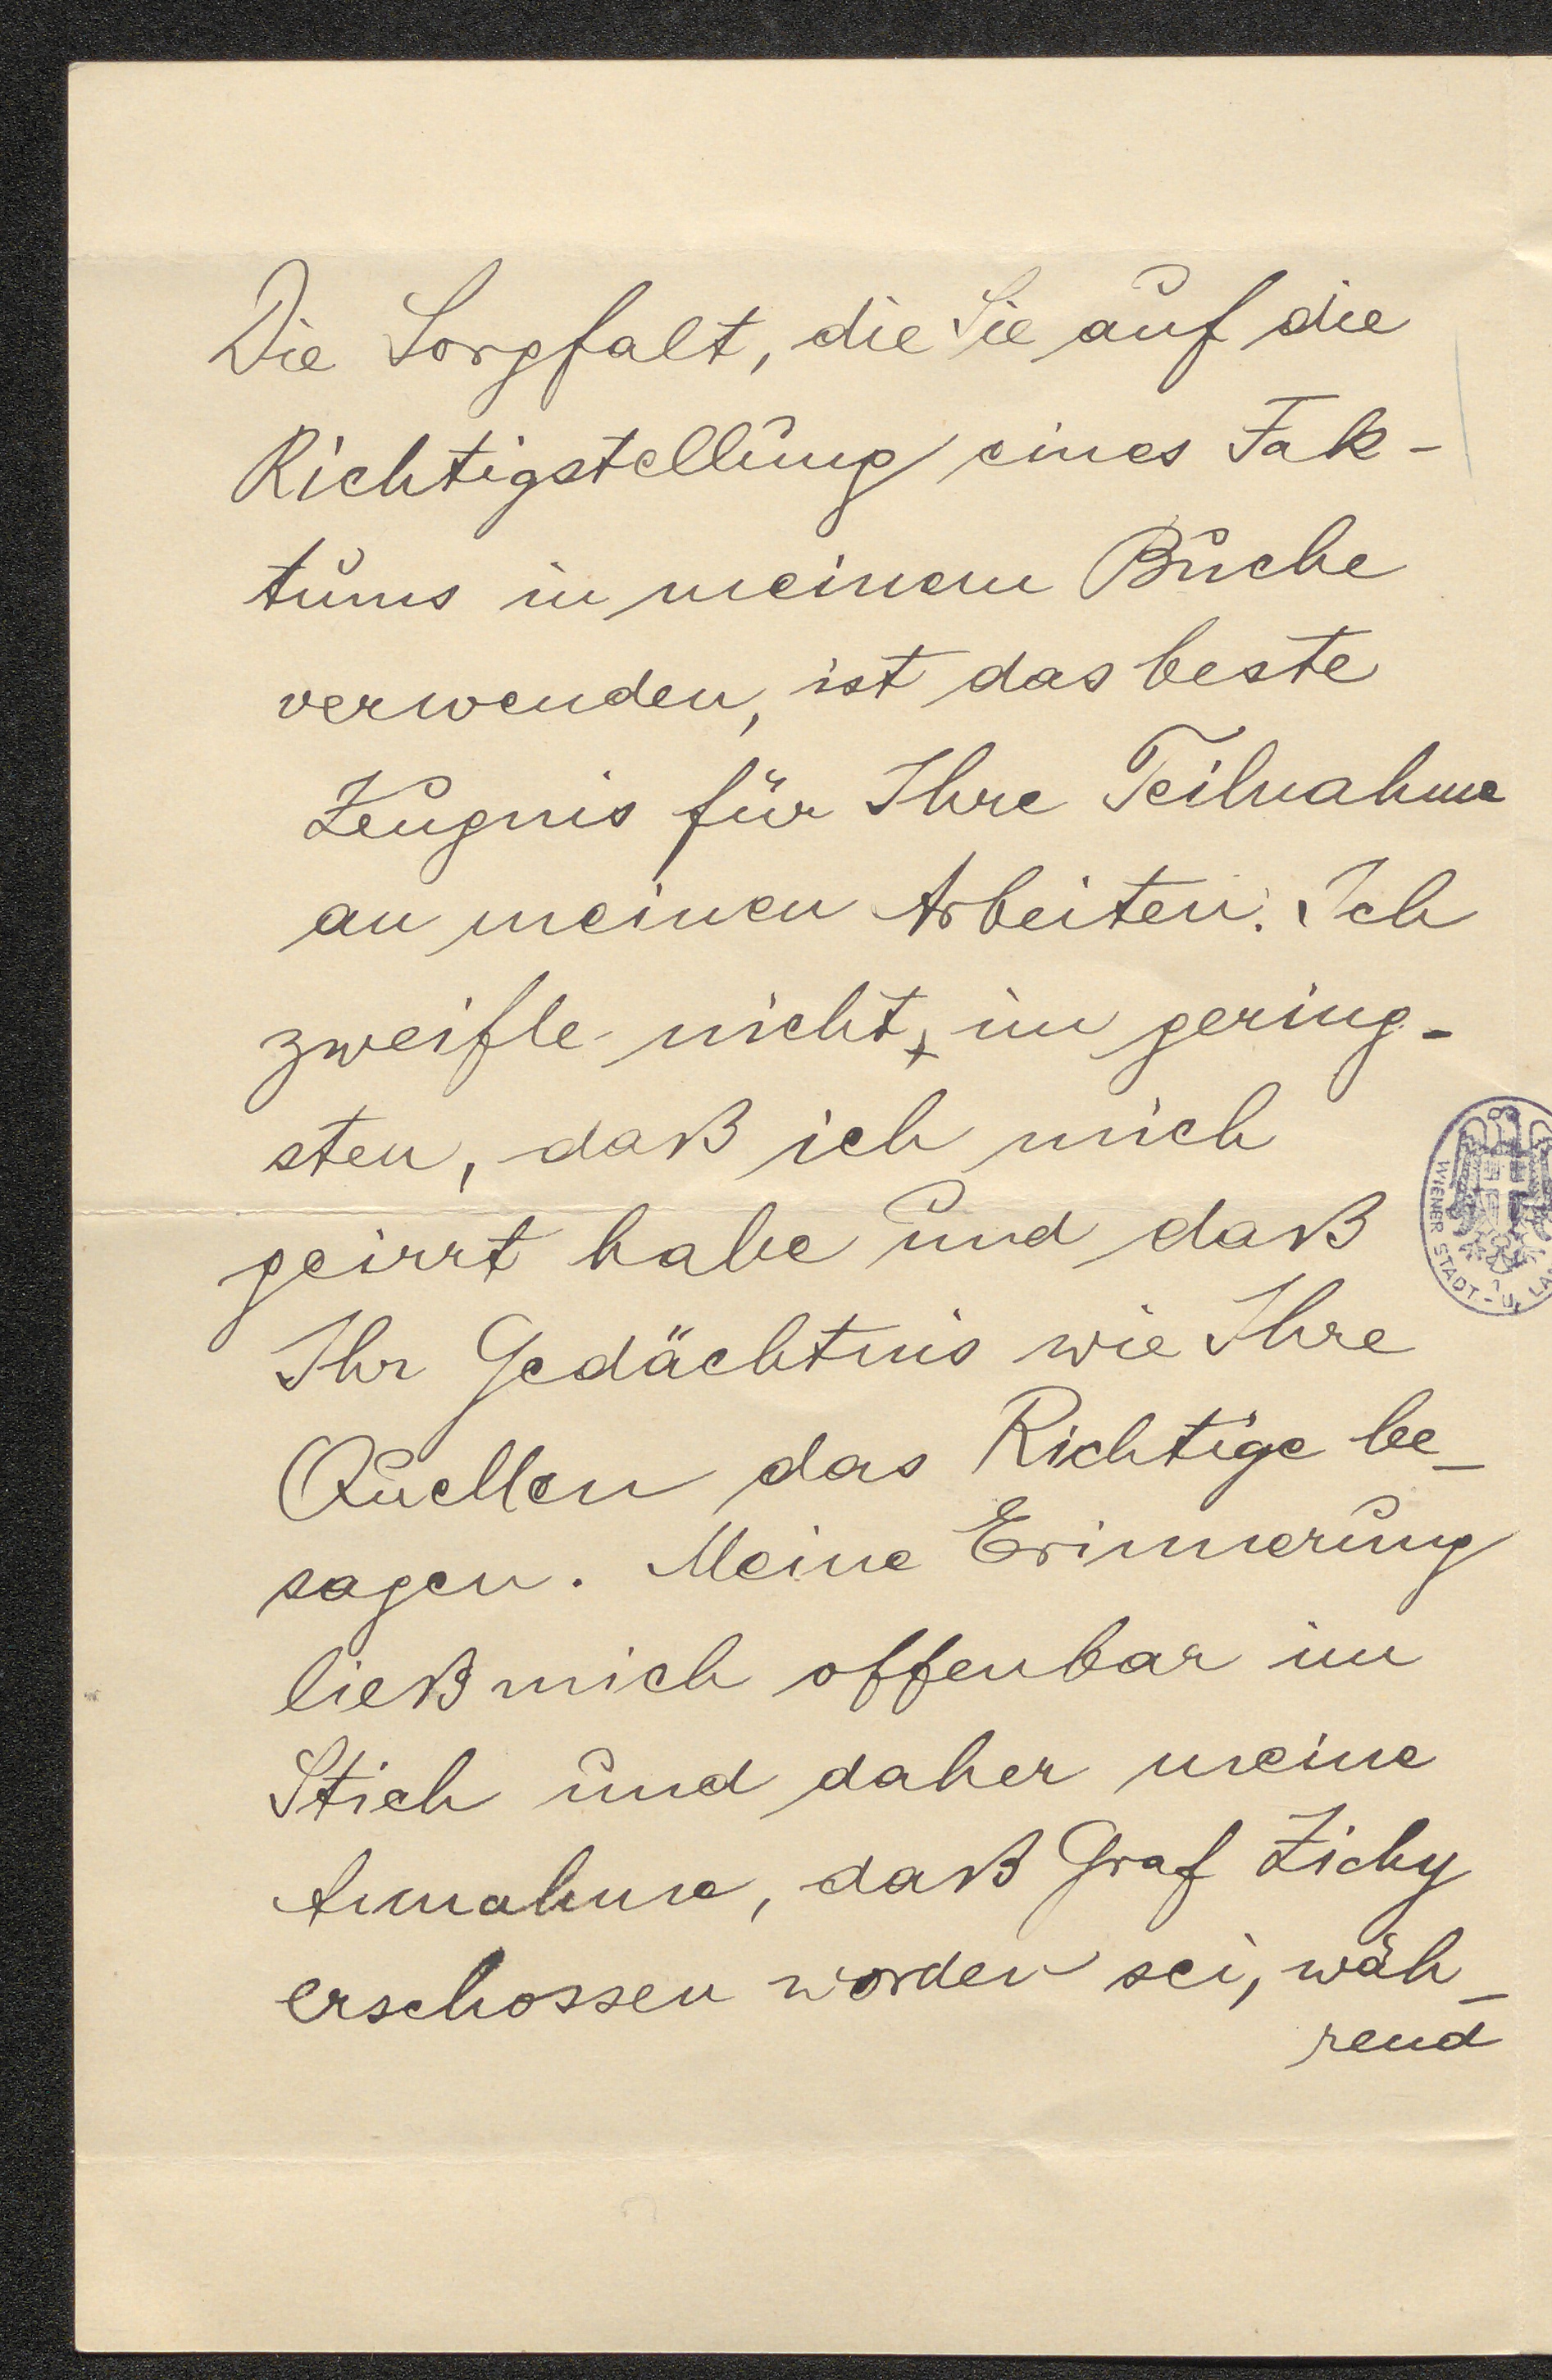 Die Sorgfalt, die Sie auf die
Richtigstellung eines Fak-
tums in meinem Buche
verwenden, ist das beste
Zeugnis für Ihre Teilnahme
an meinen Arbeiten. Ich
zweifle nicht, im gering-
sten, daß ich mich
geirrt habe und daß
Ihr Gedächtnis wie Ihre
Quellen das Richtige be-
sagen. Meine Erinnerung
ließ mich offenbar im
Stich und daher meine
Annahme, daß Graf Zichy
erschossen worden sei, wäh-
rend
WIENER STADT- U. LA